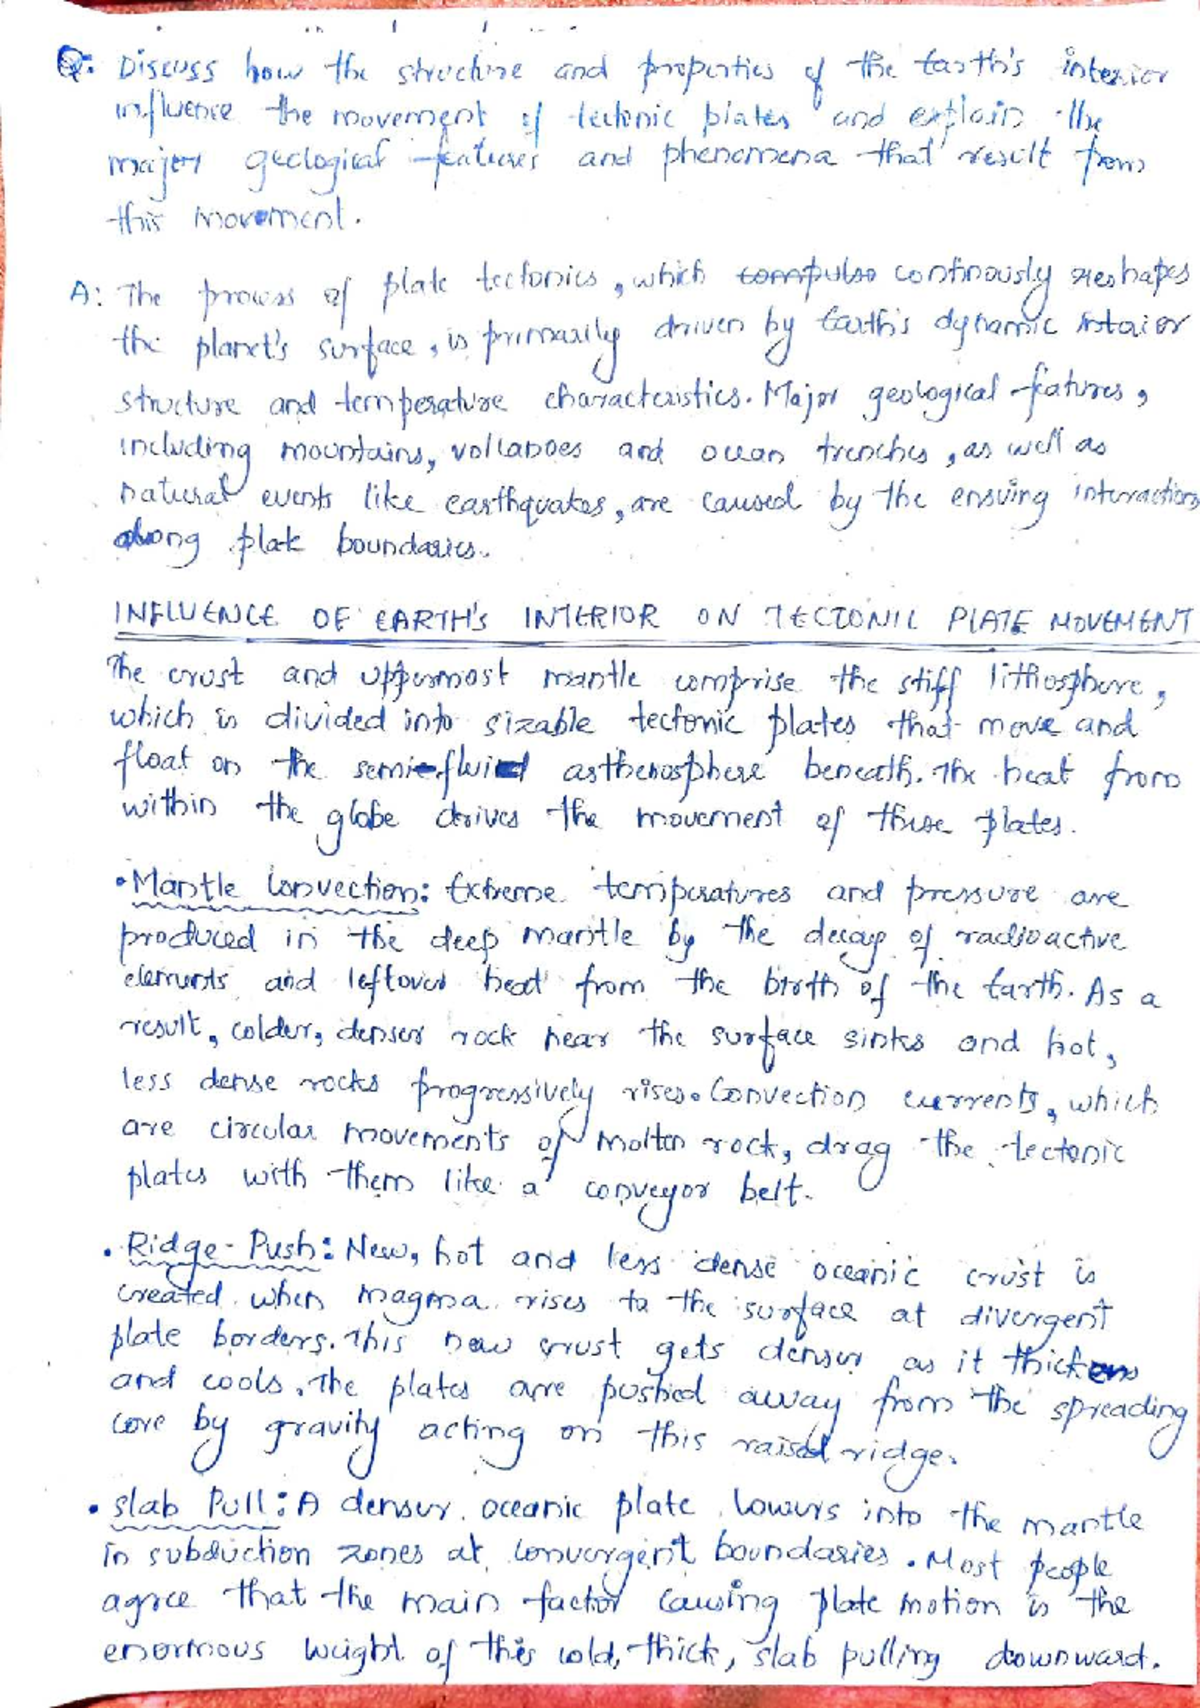 Q: Discuss how the structure and properties of the Earth's interior
influence the movement of tectonic plates and explain the
major geological features and phenomena that result from
this movement.
A: The process of plate tectonics, which compulso continously reshapes
the planet's surface, is primarily driven by Earth's dynamic intaior
structure and temperature characteristics. Major geological features,
including mountains, volcanoes and ocean trenches, as well as
natural events like earthquakes, are caused by the ensuing interactions
along plate boundaries.
INFLUENCE OF EARTH'S INTERIOR ON TECTONIC PLATE MOVEMENT
The crust and uppermost mantle comprise the stiff lithosphere,
which is divided into sizable tectonic plates that move and
float on the semi-fluid asthenosphere beneath. The heat from
within the globe drives the movement of these plates.
• Mantle Convection: Extreme temperatures and pressure are
produced in the deep mantle by the decay of radioactive
elements and leftover heat from the birth of the Earth. As a
result, colder, denser rock near the surface sinks and hot,
less dense rocks progressively rises. Convection currents, which
are circular movements of molten rock, drag the tectonic
plates with them like a conveyor belt.
• Ridge-Push: New, hot and less dense oceanic crust is
created when magma rises to the surface at divergent
plate borders. This new crust gets denser as it thickens
and cools. The plates are pushed away from the spreading
core by gravity acting on this raised ridge.
• Slab Pull: A denser oceanic plate lowers into the mantle
in subduction zones at convergent boundaries. Most people
agree that the main factor causing plate motion is the
enormous weight of this cold, thick, slab pulling downward.